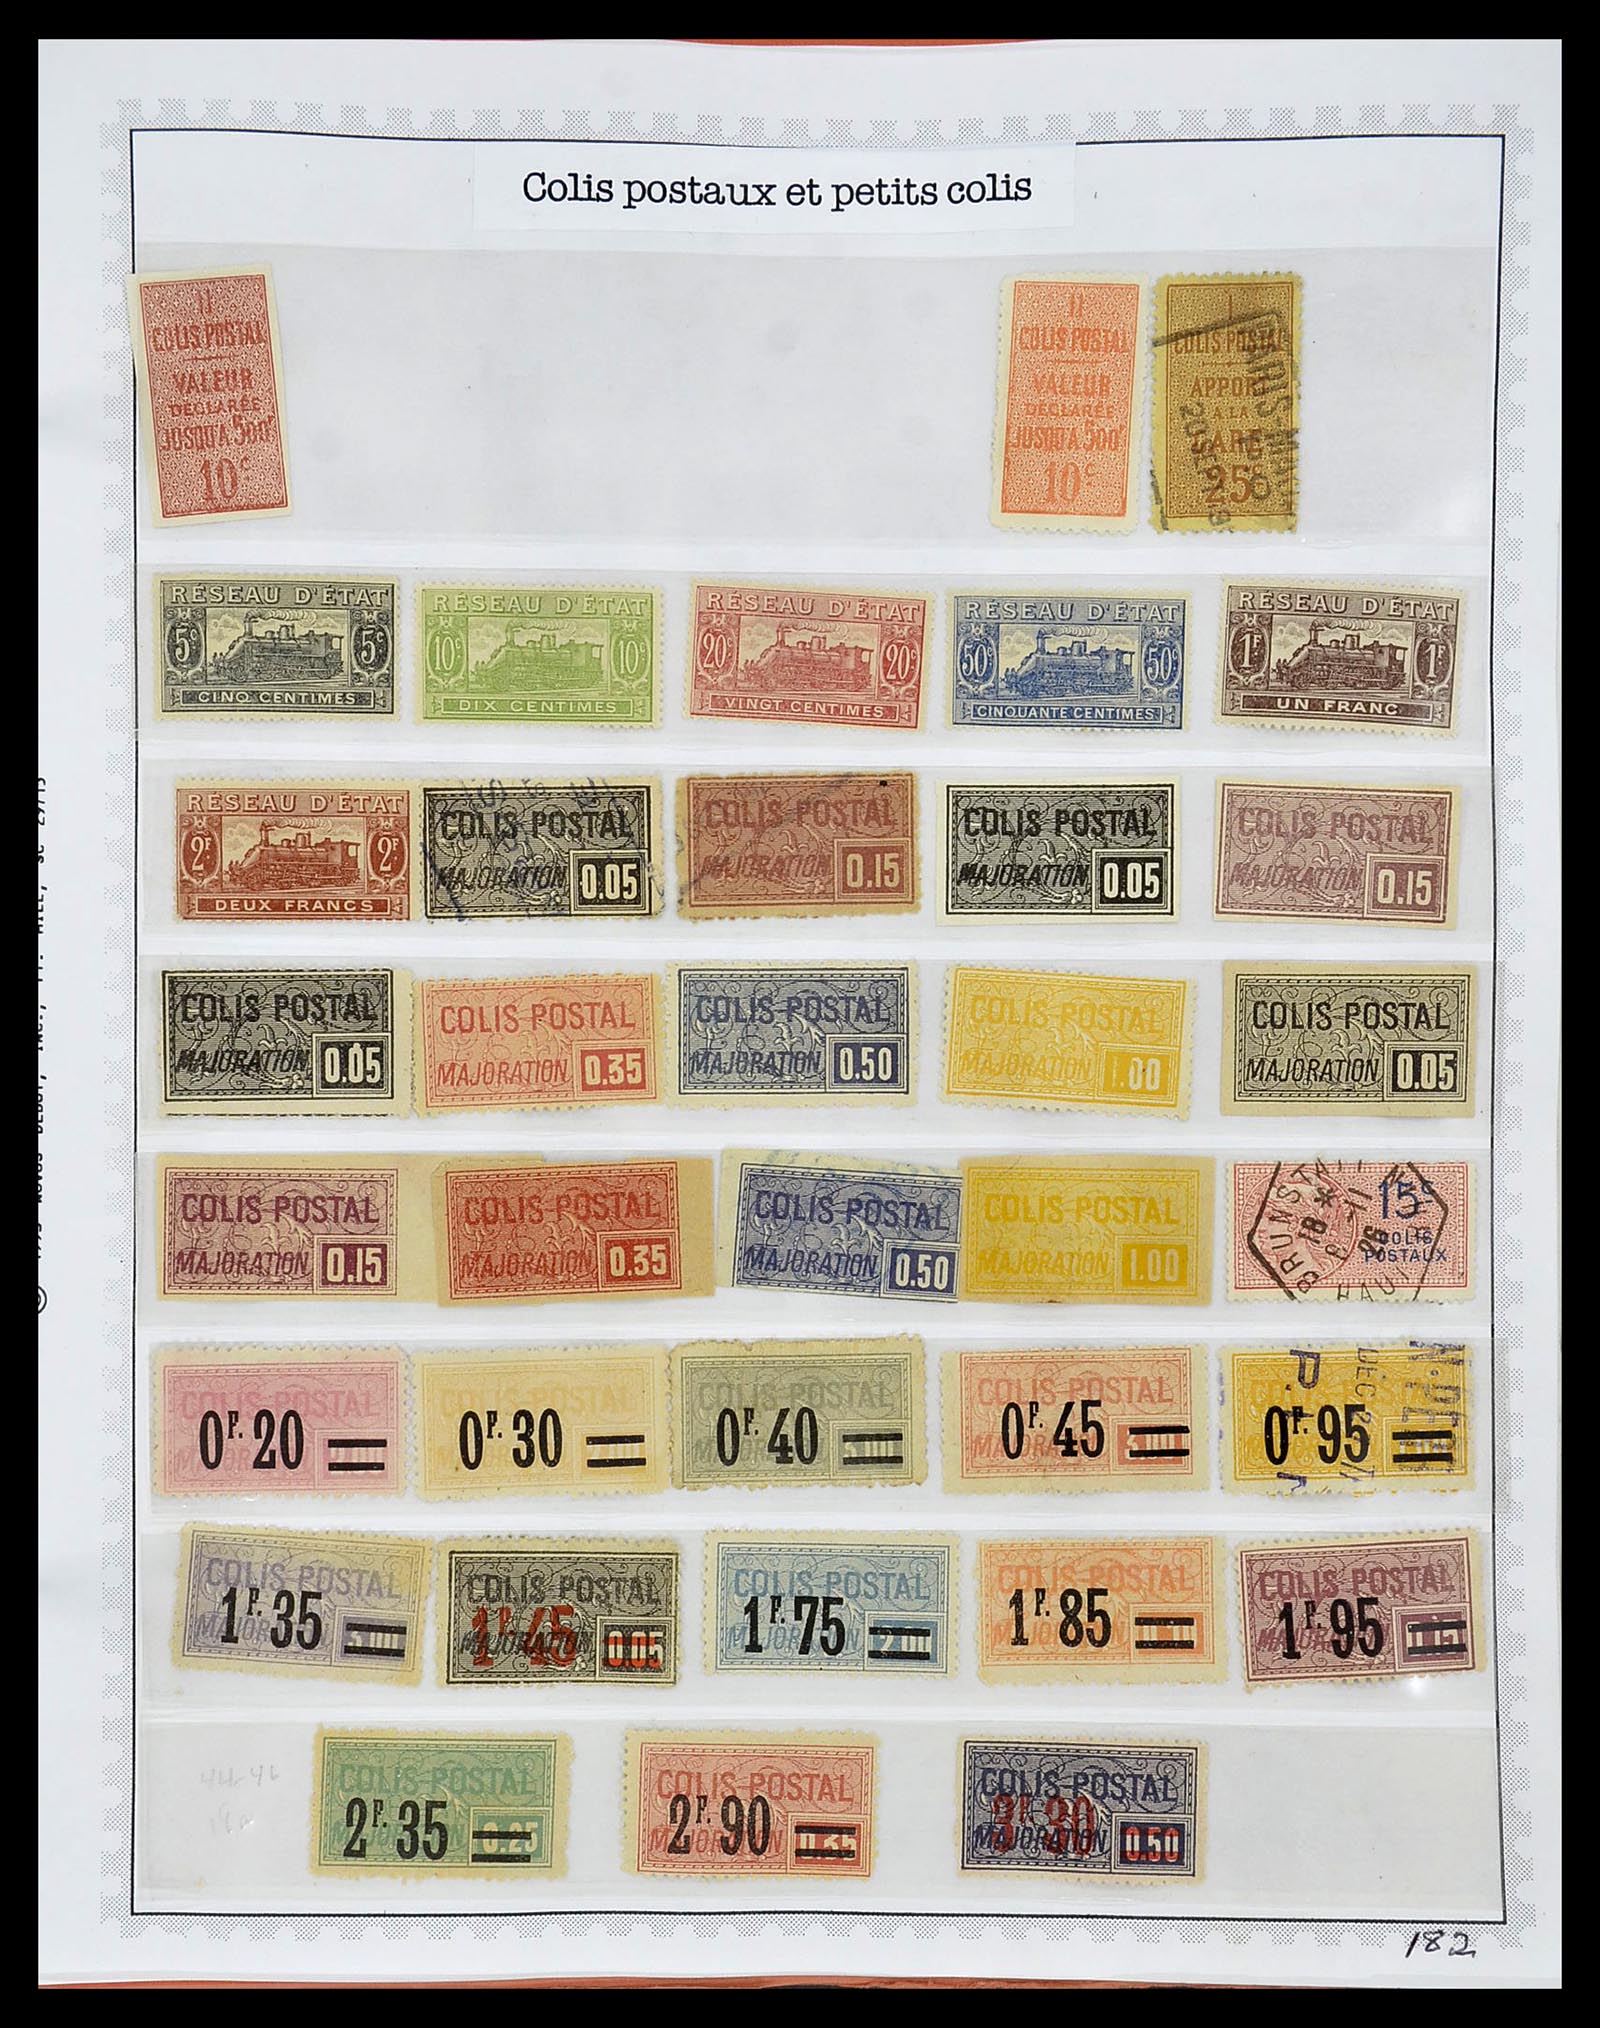 Colis postaux et petits colis
II
COLIS POSTAL
VALEUR
DÉCLARÉE
JUSQU'A 500F
10c
II
COLIS POSTAL
VALEUR
DÉCLARÉE
JUSQU'A 500F
10c
I
COLIS POSTAL
APPORT
A LA
GARE
25c
RÉSEAU D'ÉTAT
5c 5c
CINQ CENTIMES
RÉSEAU D'ÉTAT
10c 10c
DIX CENTIMES
RÉSEAU D'ÉTAT
20c 20c
VINGT CENTIMES
RÉSEAU D'ÉTAT
50c 50c
CINQUANTE CENTIMES
RÉSEAU D'ÉTAT
1F 1F
UN FRANC
RÉSEAU D'ÉTAT
2F 2F
DEUX FRANCS
COLIS POSTAL
MAJORATION 0.05
COLIS POSTAL
MAJORATION 0.15
COLIS POSTAL
MAJORATION 0.05
COLIS POSTAL
MAJORATION 0.15
COLIS POSTAL
MAJORATION 0.05
COLIS POSTAL
MAJORATION 0.35
COLIS POSTAL
MAJORATION 0.50
COLIS POSTAL
MAJORATION 1.00
COLIS POSTAL
MAJORATION 0.05
COLIS POSTAL
MAJORATION 0.15
COLIS POSTAL
MAJORATION 0.35
COLIS POSTAL
MAJORATION 0.50
COLIS POSTAL
MAJORATION 1.00
15c
COLIS
POSTAUX
COLIS POSTAL
0F.20
COLIS POSTAL
0F.30
COLIS POSTAL
0F.40
COLIS POSTAL
0F.45
COLIS POSTAL
0F.95
COLIS POSTAL
1F.35
COLIS POSTAL
1F.45
MAJORATION 0.05
COLIS POSTAL
1F.75
COLIS POSTAL
1F.85
COLIS POSTAL
1F.95
COLIS POSTAL
2F.35
COLIS POSTAL
2F.90
COLIS POSTAL
3F.30
MAJORATION 0.50
182